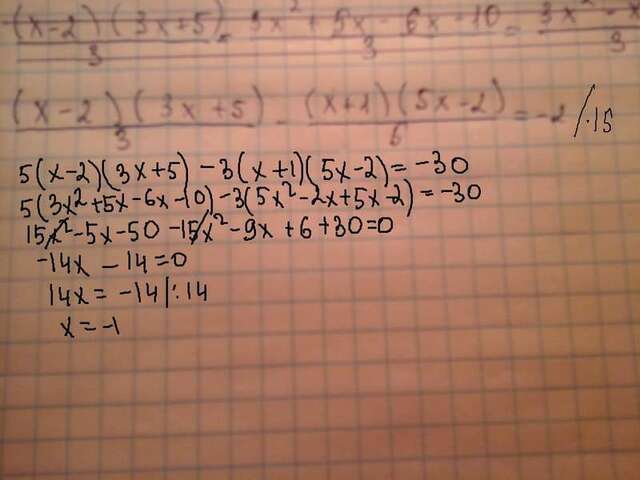 (x-2)(3x+5)/3 = 3x²+5x-6x-10/3 = 3x²-x
(x-2)(3x+5)/3 - (x+1)(5x-2)/6 = -2 /·15
5(x-2)(3x+5) -3(x+1)(5x-2)= -30
5(3x²+5x-6x-10)-3(5x²-2x+5x-2)= -30
15x²-5x-50 -15x²-9x+6+30=0
-14x -14=0
14x= -14|:14
x=-1